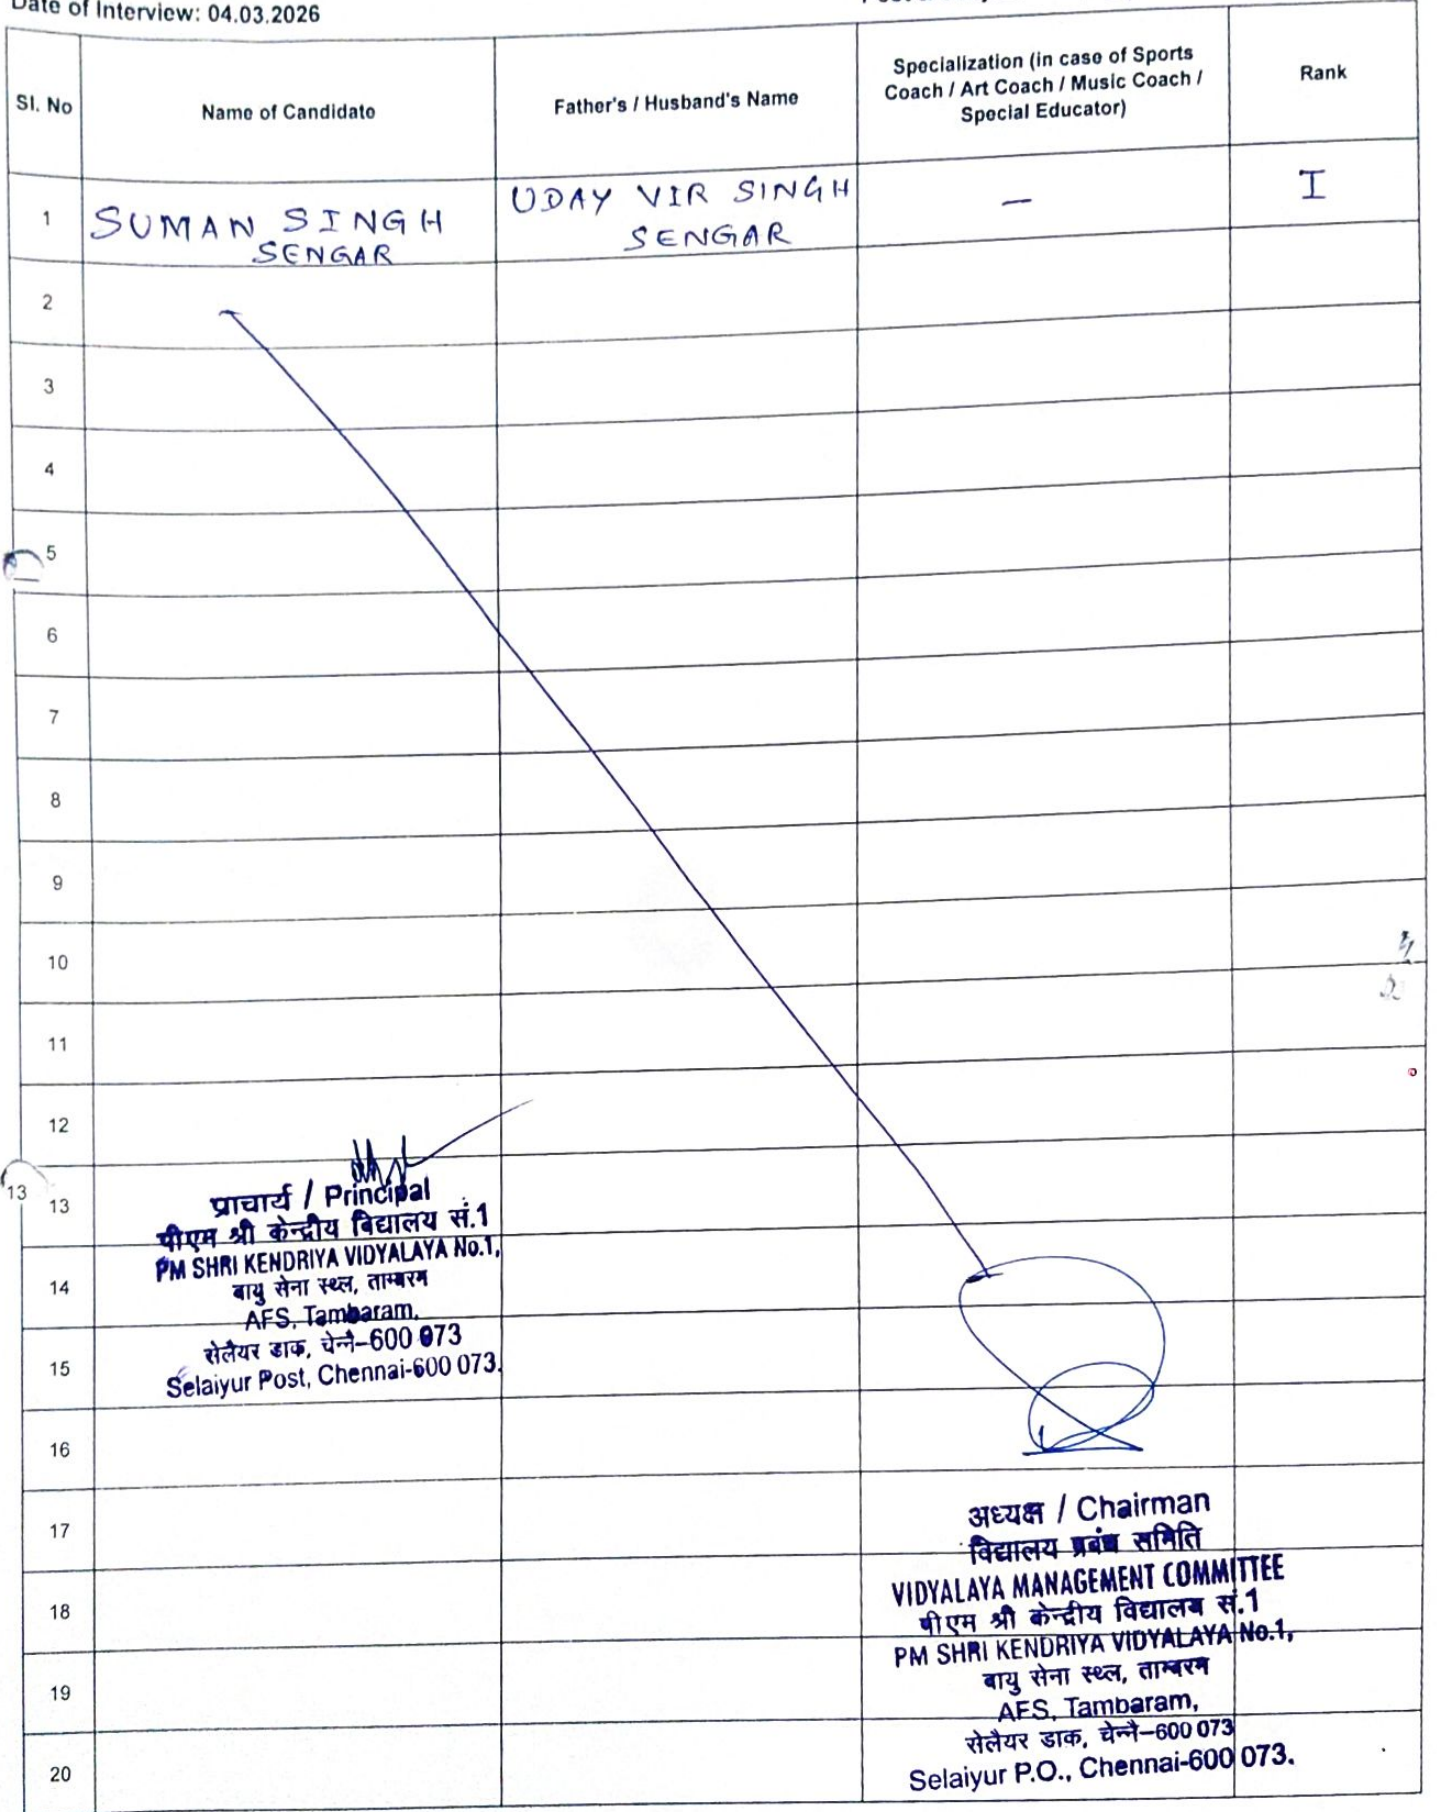 Date of Interview: 04.03.2026
Sl. No
Name of Candidate
Father's / Husband's Name
Specialization (in case of Sports
Coach / Art Coach / Music Coach /
Special Educator)
Rank
1
SUMAN SINGH
SENGAR
UDAY VIR SINGH
SENGAR
—
I
2
3
4
5
6
7
8
9
10
11
12
13
13
प्राचार्य / Principal
पीएम श्री केन्द्रीय विद्यालय सं.1
PM SHRI KENDRIYA VIDYALAYA No.1,
वायु सेना स्थ्ल, ताम्बरम
AFS, Tambaram,
सेलैयर डाक, चेन्नै–600 073
Selaiyur Post, Chennai-600 073.
14
15
16
17
18
19
20
अध्यक्ष / Chairman
विद्यालय प्रबंध समिति
VIDYALAYA MANAGEMENT COMMITTEE
पीएम श्री केन्द्रीय विद्यालय सं.1
PM SHRI KENDRIYA VIDYALAYA No.1,
वायु सेना स्थ्ल, ताम्बरम
AFS, Tambaram,
सेलैयर डाक, चेन्नै–600 073
Selaiyur P.O., Chennai-600 073.